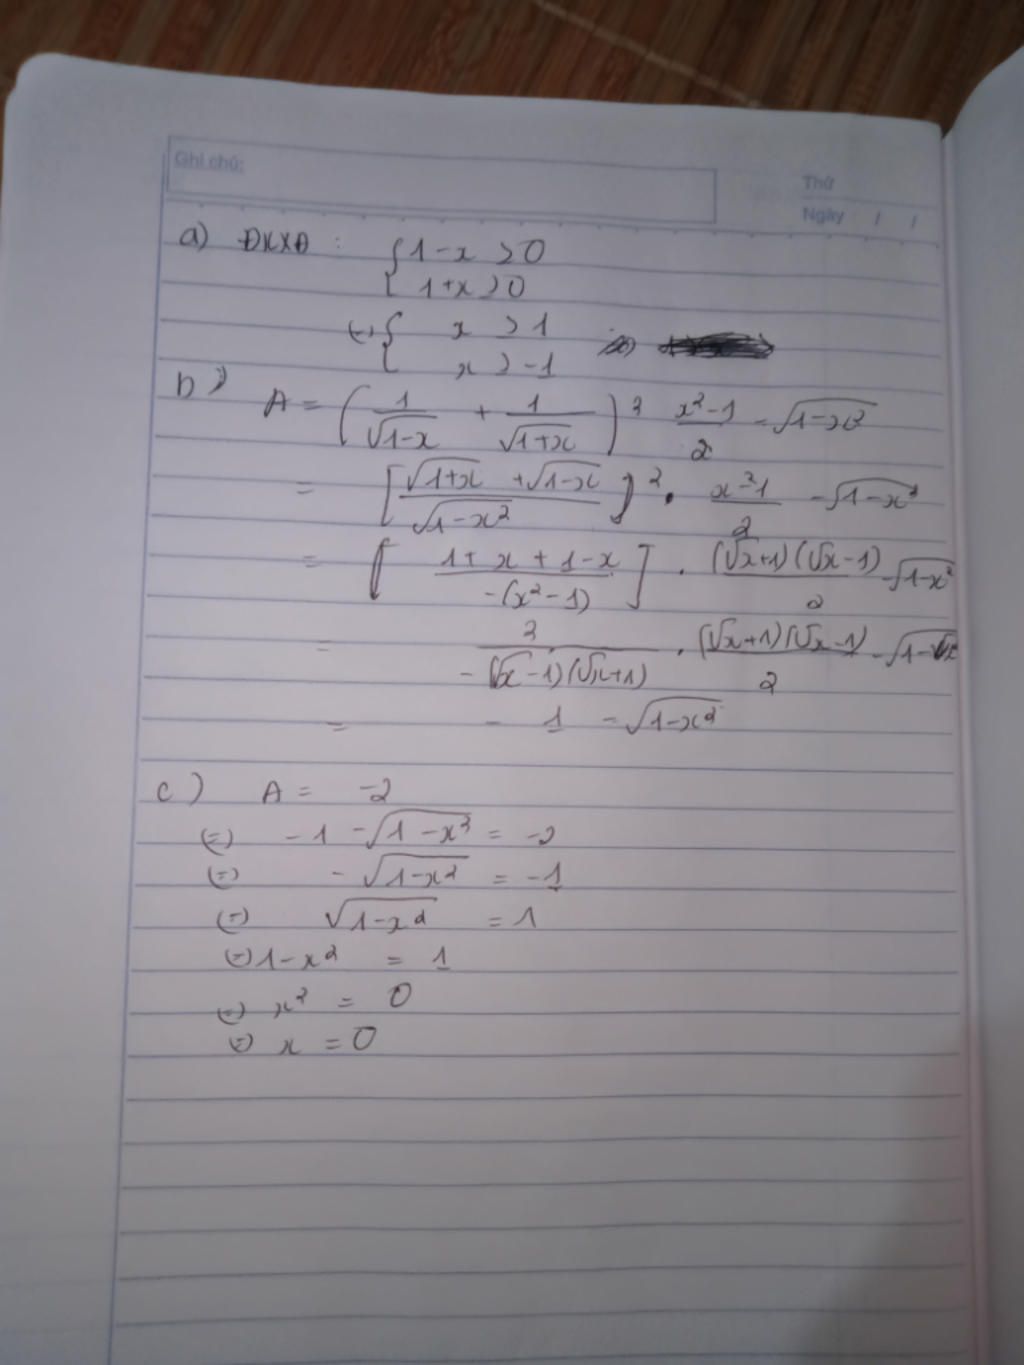 Ghi chú:
Thứ
Ngày / /
a) ĐKXĐ : { 1 - x > 0
1 + x > 0
(=) { x > 1
x > -1
b) A = ( 1/√(1-x) + 1/√(1+x) )² x²-1/2 - √(1-x²)
= [ (√(1+x) + √(1-x))/√(1-x²) ]² . x²-1/2 - √(1-x²)
= [ (1 + x + 1 - x)/(-(x²-1)) ] . (√x+1)(√x-1)/2 - √(1-x²)
= 2/(-(√x-1)(√x+1)) . (√x+1)(√x-1)/2 - √(1-x²)
= - 1 - √(1-x²)
c) A = -2
(=) -1 - √(1-x²) = -2
(=) - √(1-x²) = -1
(=) √(1-x²) = 1
(=) 1-x² = 1
(=) x² = 0
(=) x = 0